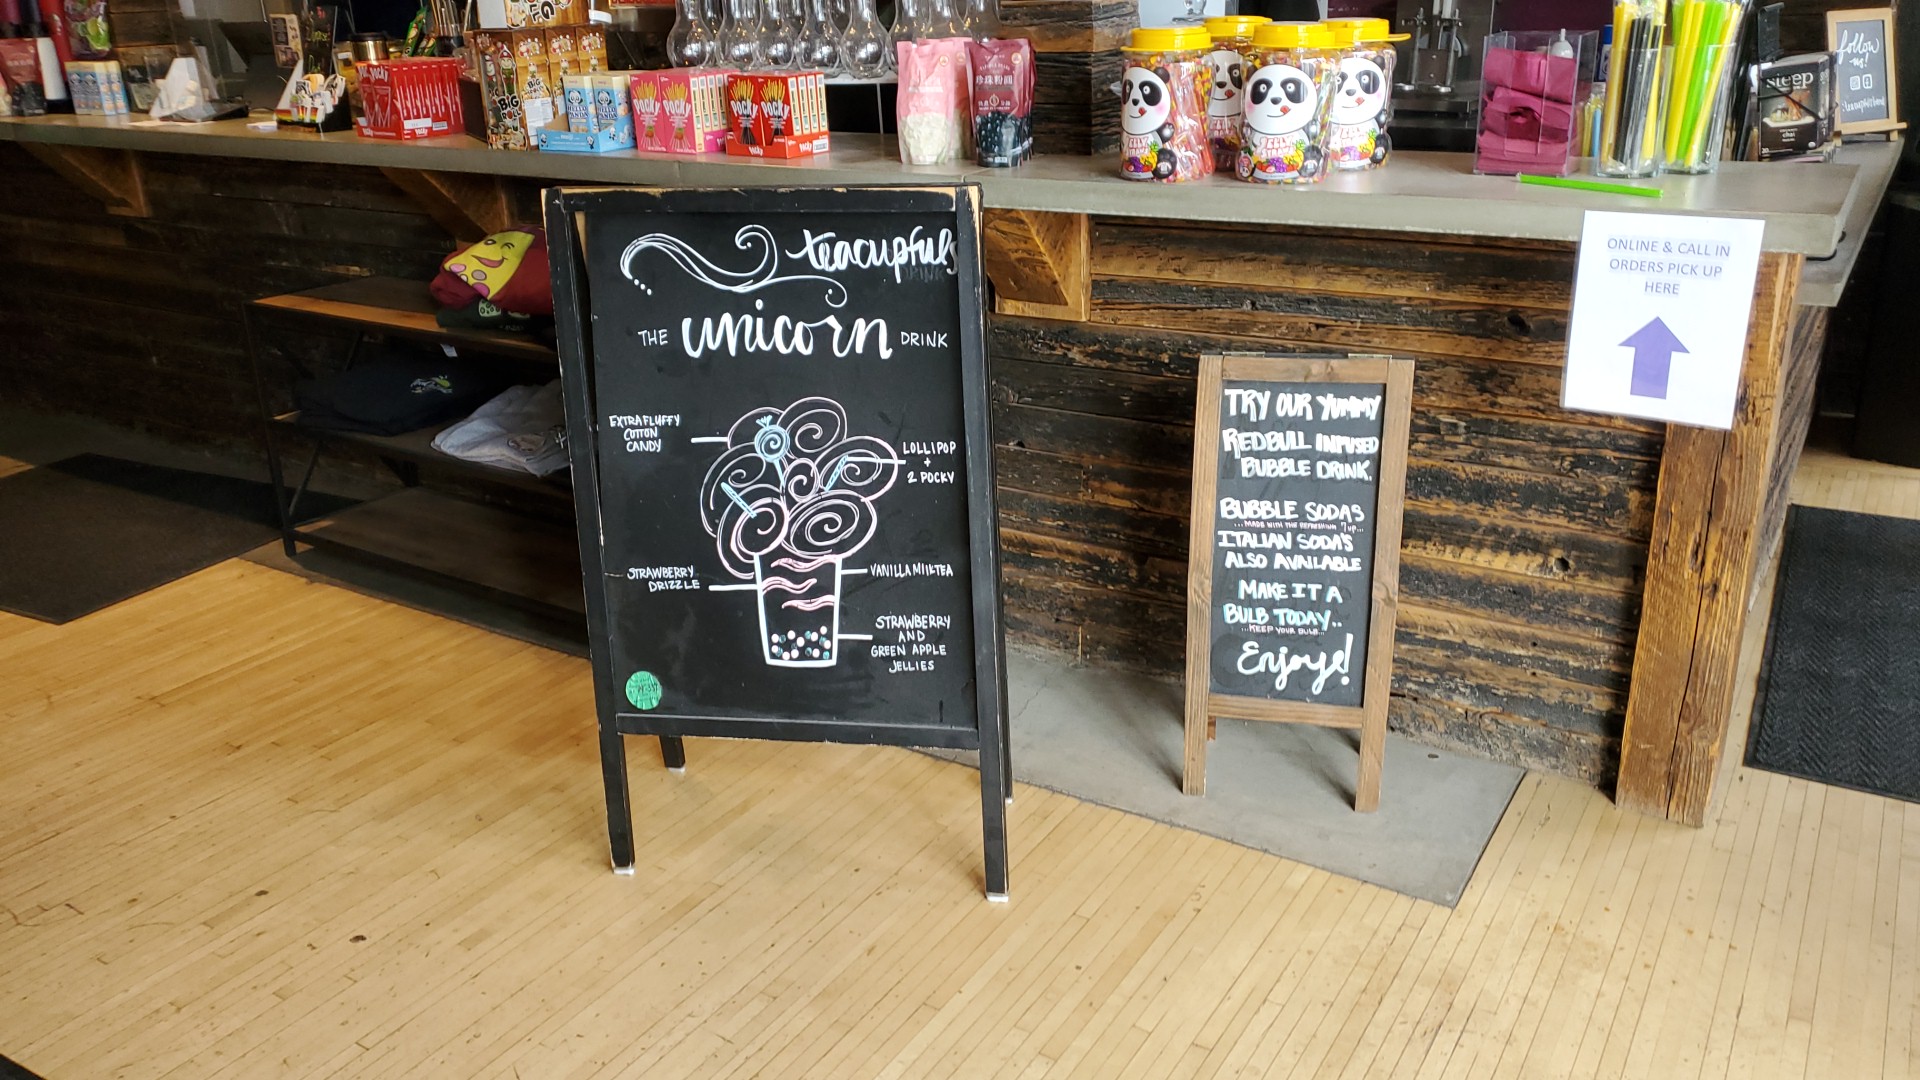 POCKY
POCKY
POCKY
POCKY
steep
chai
follow
us!
ONLINE & CALL IN
ORDERS PICK UP
HERE
teacupfuls
DRINK
THE unicorn DRINK
EXTRA FLUFFY
COTTON
CANDY
LOLLIPOP
+
2 POCKY
STRAWBERRY
DRIZZLE
VANILLA MILKTEA
STRAWBERRY
AND
GREEN APPLE
JELLIES
TRY OUR YUMMY
REDBULL INFUSED
BUBBLE DRINK.
BUBBLE SODAS
...MADE WITH THE REFRESHING 7UP...
ITALIAN SODA'S
ALSO AVAILABLE
MAKE IT A
BULB TODAY..
...KEEP YOUR BULB...
Enjoye!